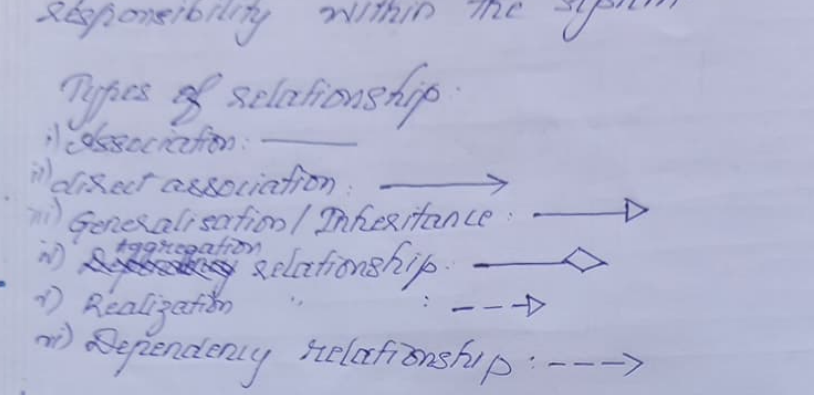 responsibility within the system
Types of relationship.
i) Association:
ii) direct association:
iii) Generalisation / Inheritance:
iv) Aggregation relationship.
v) Realization " :
vi) Dependency relationship: